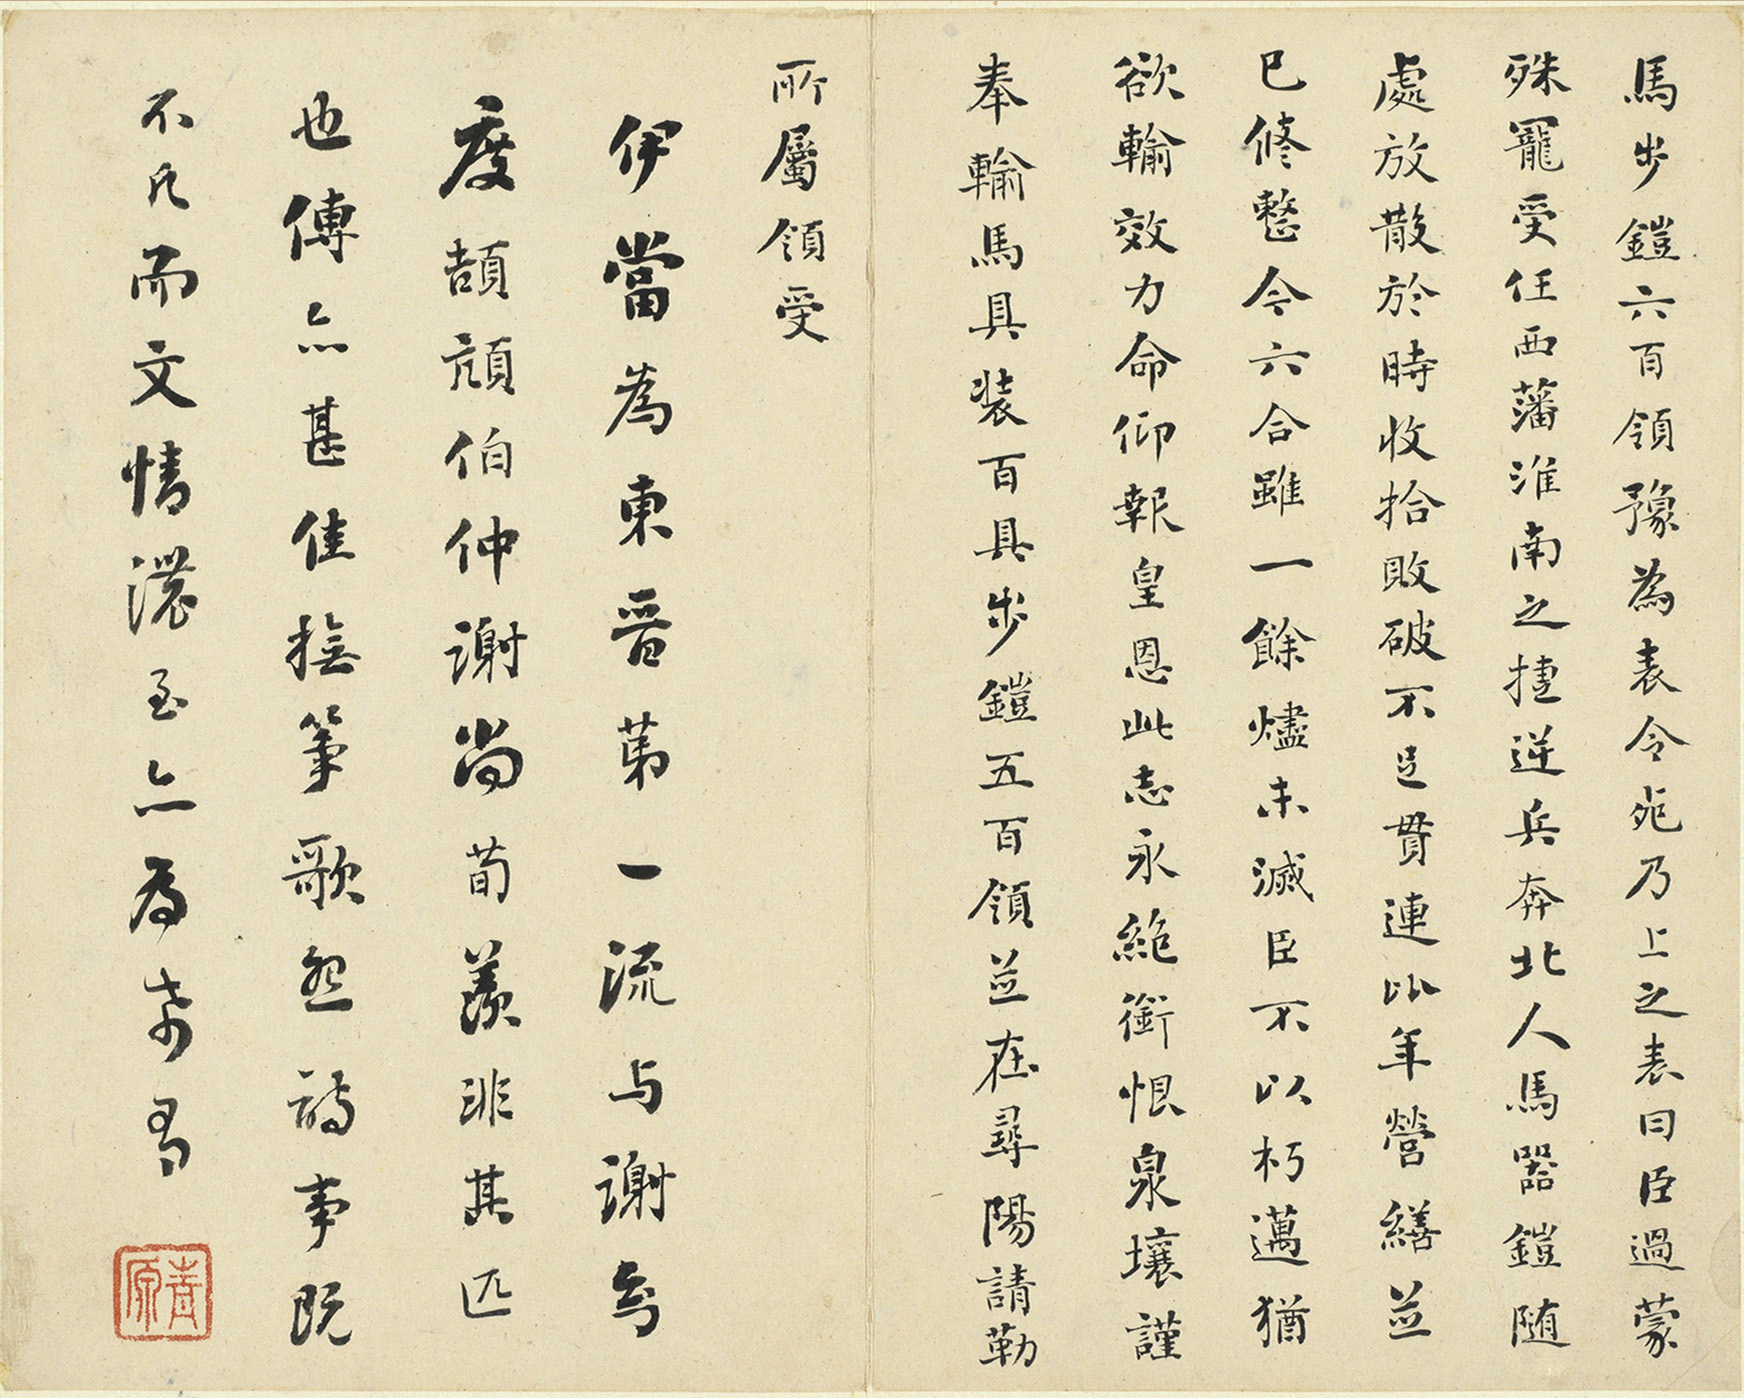 馬步鎧六百領豫為表令死乃上之表曰臣過蒙
殊寵受任西藩淮南之捷逆兵奔北人馬器鎧隨
處放散於時收拾敗破不足貫連比年營繕並
已修整今六合雖一餘燼未滅臣不以朽邁猶
欲輸效力命仰報皇恩此志永絕銜恨泉壤謹
奉輸馬具裝百具步鎧五百領並在尋陽請勒
所屬領受
伊當為東晉第一流与謝安
度頡頏伯仲謝尚荀羨非其匹
也傳亦甚佳撫箏歌怨詩事既
不凡而文情濃至亦為希有